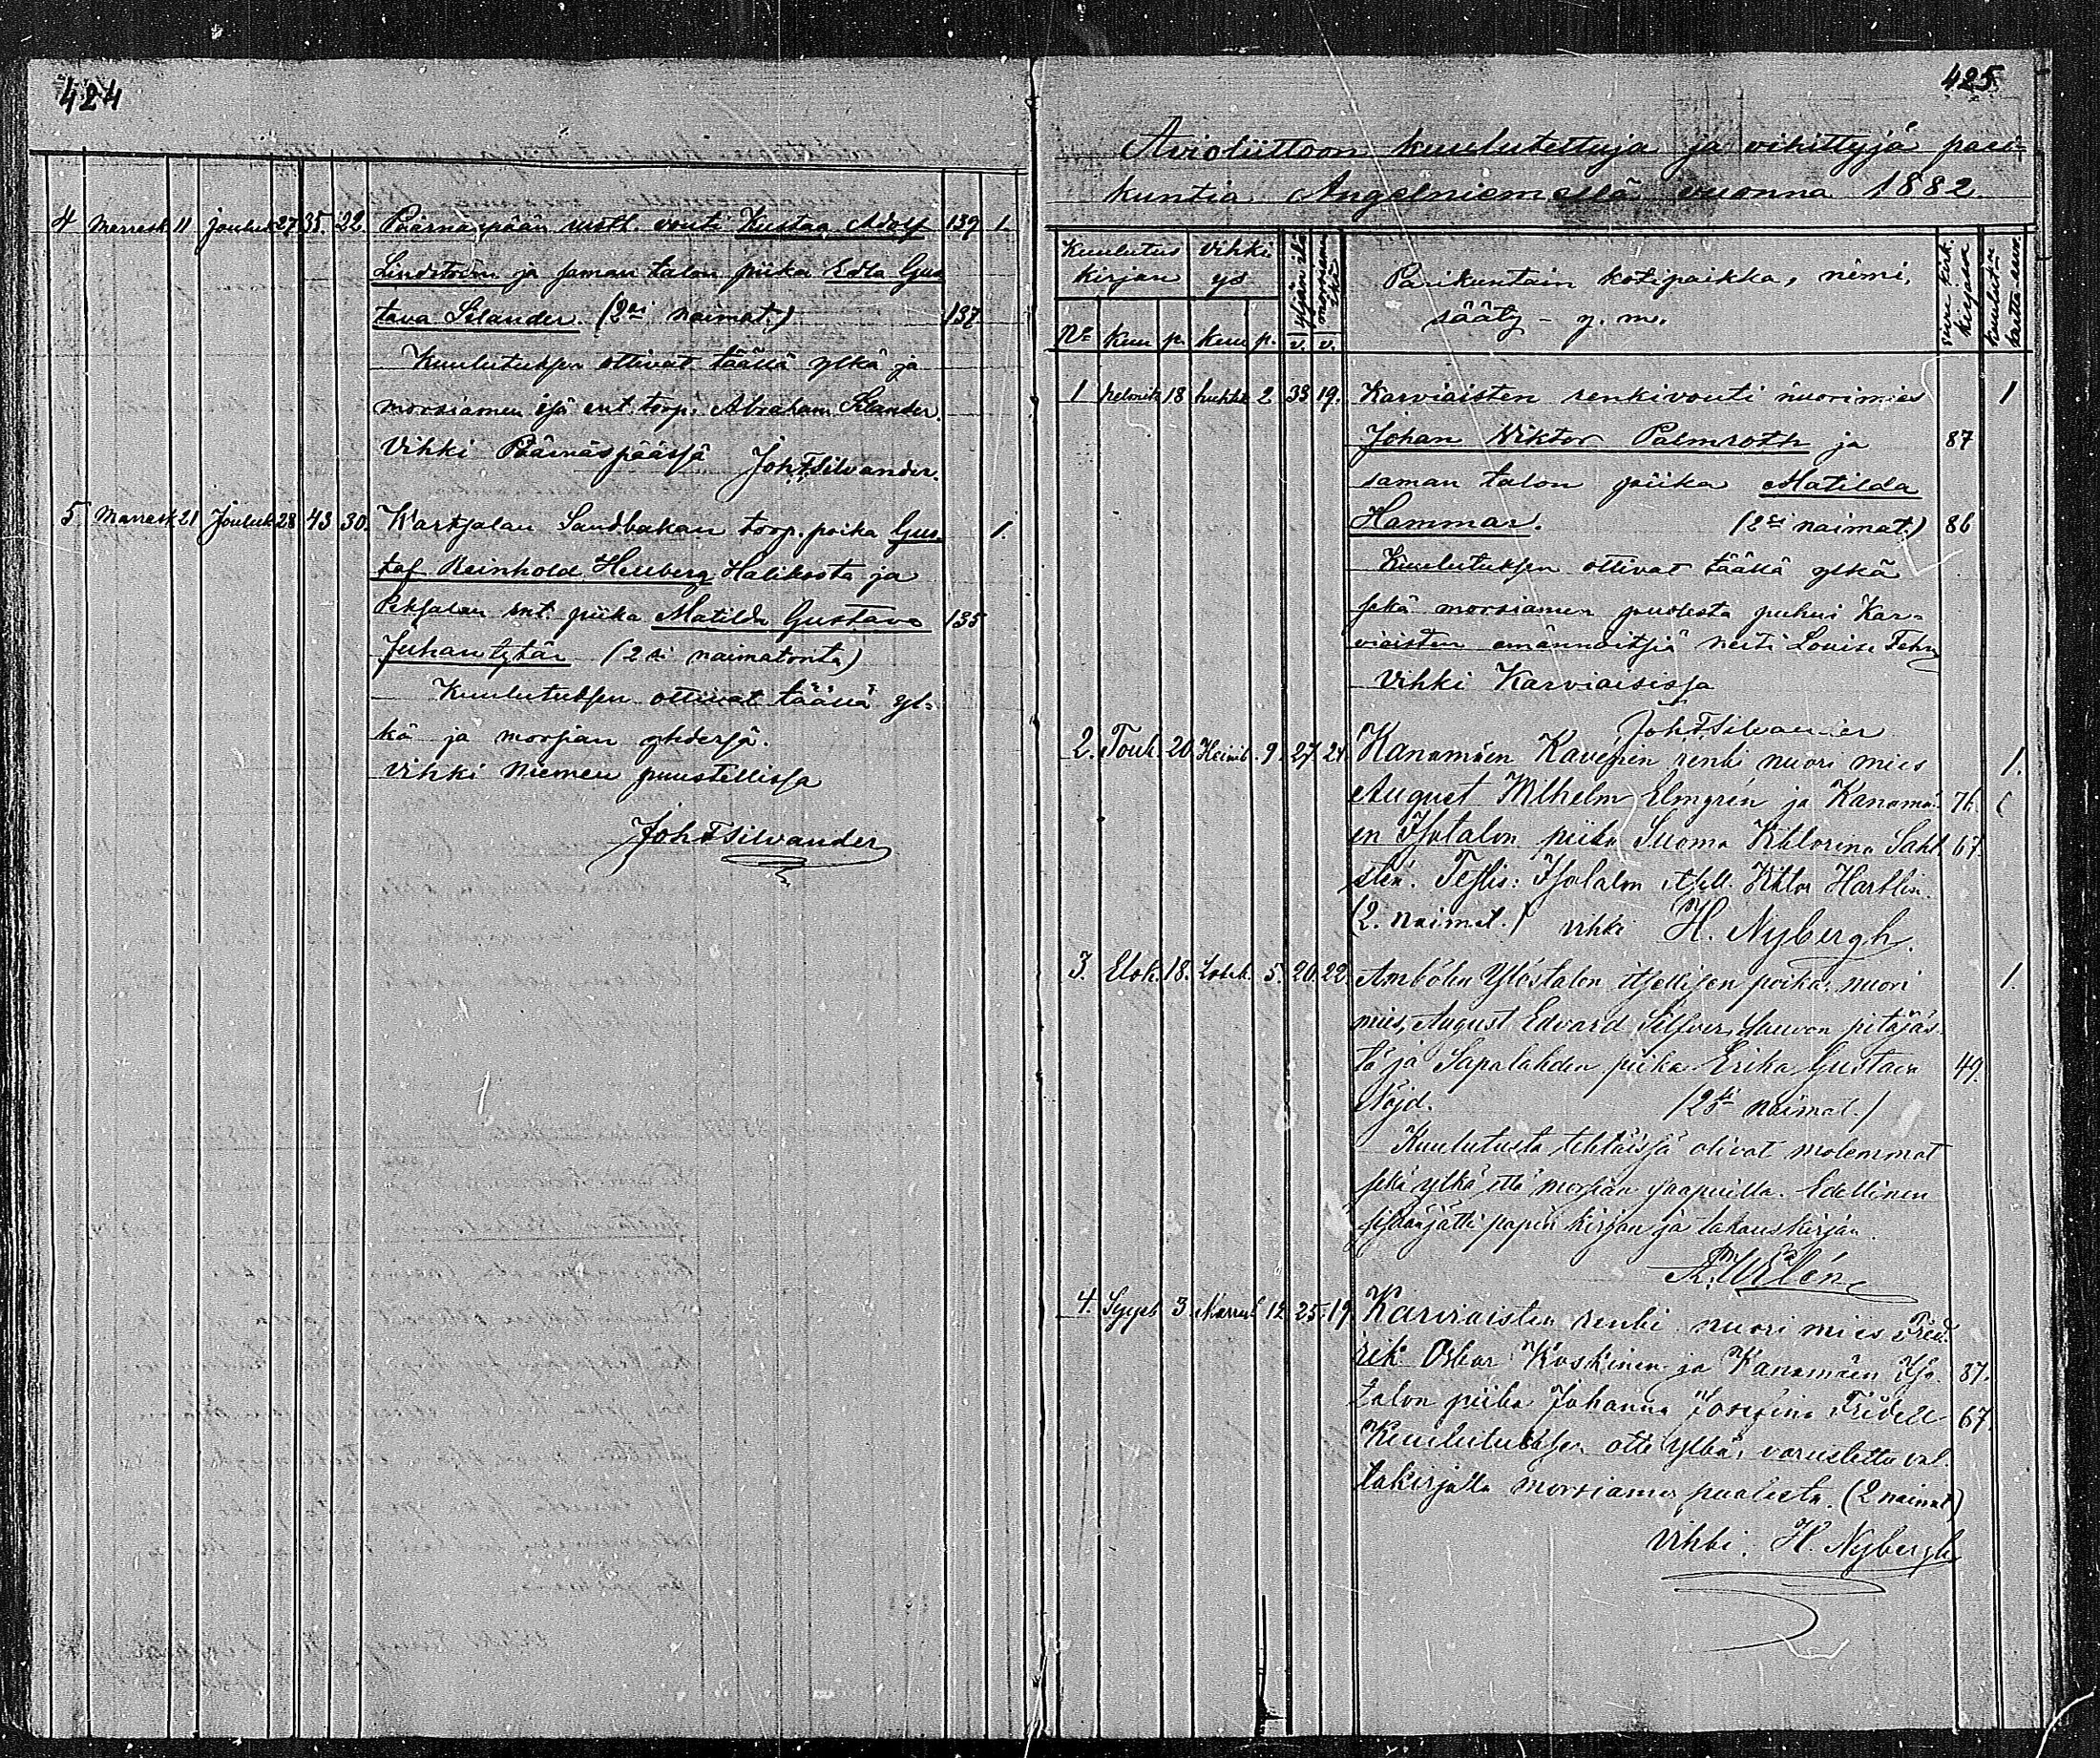 424
4 Marrask 11 Jouluk 27 35. 22. Päärnäspään ustt. vouti Kustaa Adolf 139 1.
Lindström ja saman talon piika Edla Gus
tava Selander. (2si naimat.) 137
Kuulutuksen ottivat täällä ylkä ja
morsiamen isä ent. torp. Abraham Selander.
Vihki Päärnäspäässä Joh F Silvander.
5 Marrask 21 Jouluk 28 43 30. Karkjalan Sandbakan torp. poika Gus 1.
taf Reinhold Hellberg Halikosta ja
Pekjalan ent. piika Matilda Gustava 135
Juhantytär (2si naimatonta)
Kuulutuksen ottivat täällä yl=
kä ja morsian yhdessä.
Vihki Niemen puustellissa
Joh F Silvander
425
Avioliittoon kuulutettuja ja vihittyjä pari=
kuntia Angelniemellä vuonna 1882.
Kuulutus Vihki
kirjan ys
Parikuntain kotipaikka, nimi,
sääty - y. m.
No Kuu p. Kuu p. v. v.
yljän ikä
morsiamen ikä
sivu kirk. kirjassa
1 Helmik 18 huhtik 2 33 19. Karviaisten renkivouti nuorimies 1
Johan Viktor Palmroth ja 87
saman talon piika Matilda
Hammar. (2si naimat.) 86
Kuulutuksen ottivat täällä ylkä
sekä morsiamen puolesta puhui Kar=
viaisten emännöitsiä neiti Louise Fehn
Vihki Karviaisissa
Joh F Silvander
2. Touk. 20. Heinäk. 9. 27. 24. Kanamäen Kavenin renki nuori mies 1.
August Wilhelm Elmgrén ja Kanamä- 76.
en Isotalon piika Suoma Viktorina Sahl 67.
stén. Testis: Isotalon itsell. Viktor Harblin.
(2. naimat.) vihki H. Nybergh.
3. Elok. 18. Lokak. 5. 20. 22. Ambölin Ylöstalon itsellisen poika, nuori 1.
mies, August Edvard Silfver, Sauvon pitäjäs-
tä ja Sapalahden piika Erika Gustava 49.
Nöjd. (2si naimat.)
Kuulutusta tehtäissä olivat molemmat
sekä ylkä että morsian saapuilla. Edellinen
sisäänjätti papin kirjan ja takauskirjan.
4. Syysk 3 Marrask. 12. 25. 19. Karviaisten renki nuori mies Fred-
rik Oskar Koskinen ja Kanamäen Iso- 87.
talon piika Johanna Josefina Fridell 67.
Kuulutuksen otti ylkä, varustettu val-
takirjalla morsiamen puolesta. (2 naimat)
Vihki: H. Nybergh